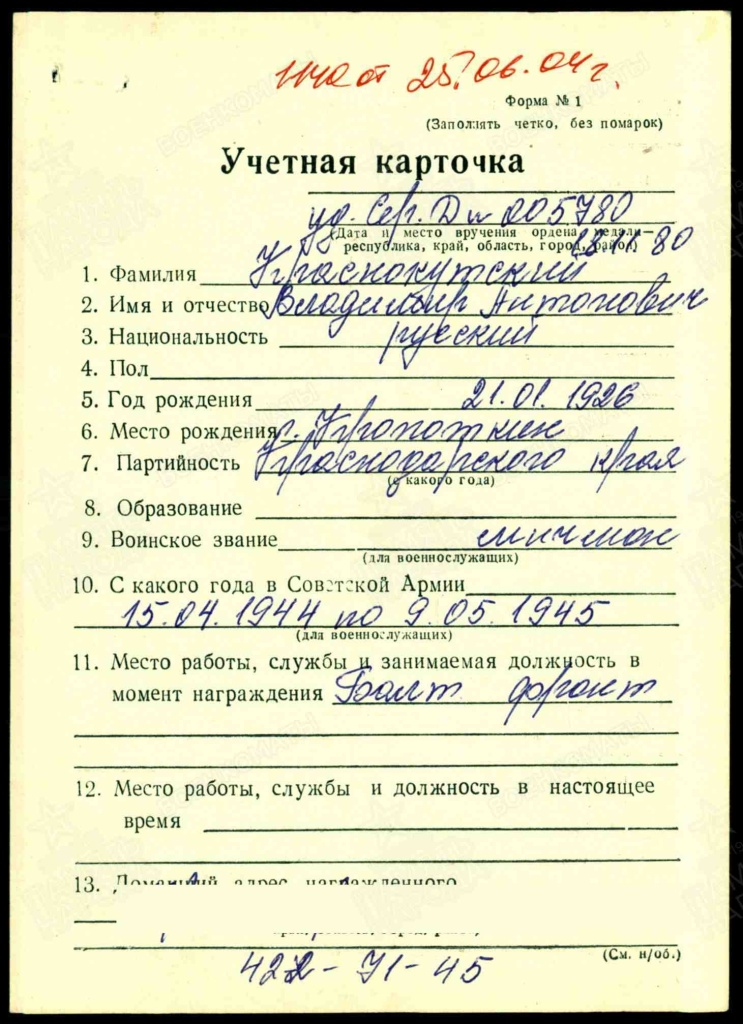 от 25.06.04 г.
Форма № 1
(Заполнять четко, без помарок)
Учетная карточка
уд. Сер. Дл 005780
(Дата и место вручения ордена, медали—
республика, край, область, город, район) 80
1. Фамилия Краснокутский
2. Имя и отчество Владимир Антонович
3. Национальность русский
4. Пол
5. Год рождения 21.01.1926
6. Место рождения г. Кропоткин
7. Партийность Краснодарского края
(с какого года)
8. Образование
9. Воинское звание мичман
(для военнослужащих)
10. С какого года в Советской Армии
15.04.1944 по 9.05.1945
(для военнослужащих)
11. Место работы, службы и занимаемая должность в
момент награждения Балт фронт
12. Место работы, службы и должность в настоящее
время
13. Домашний адрес награжденного
(См. н/об.)
422-71-45